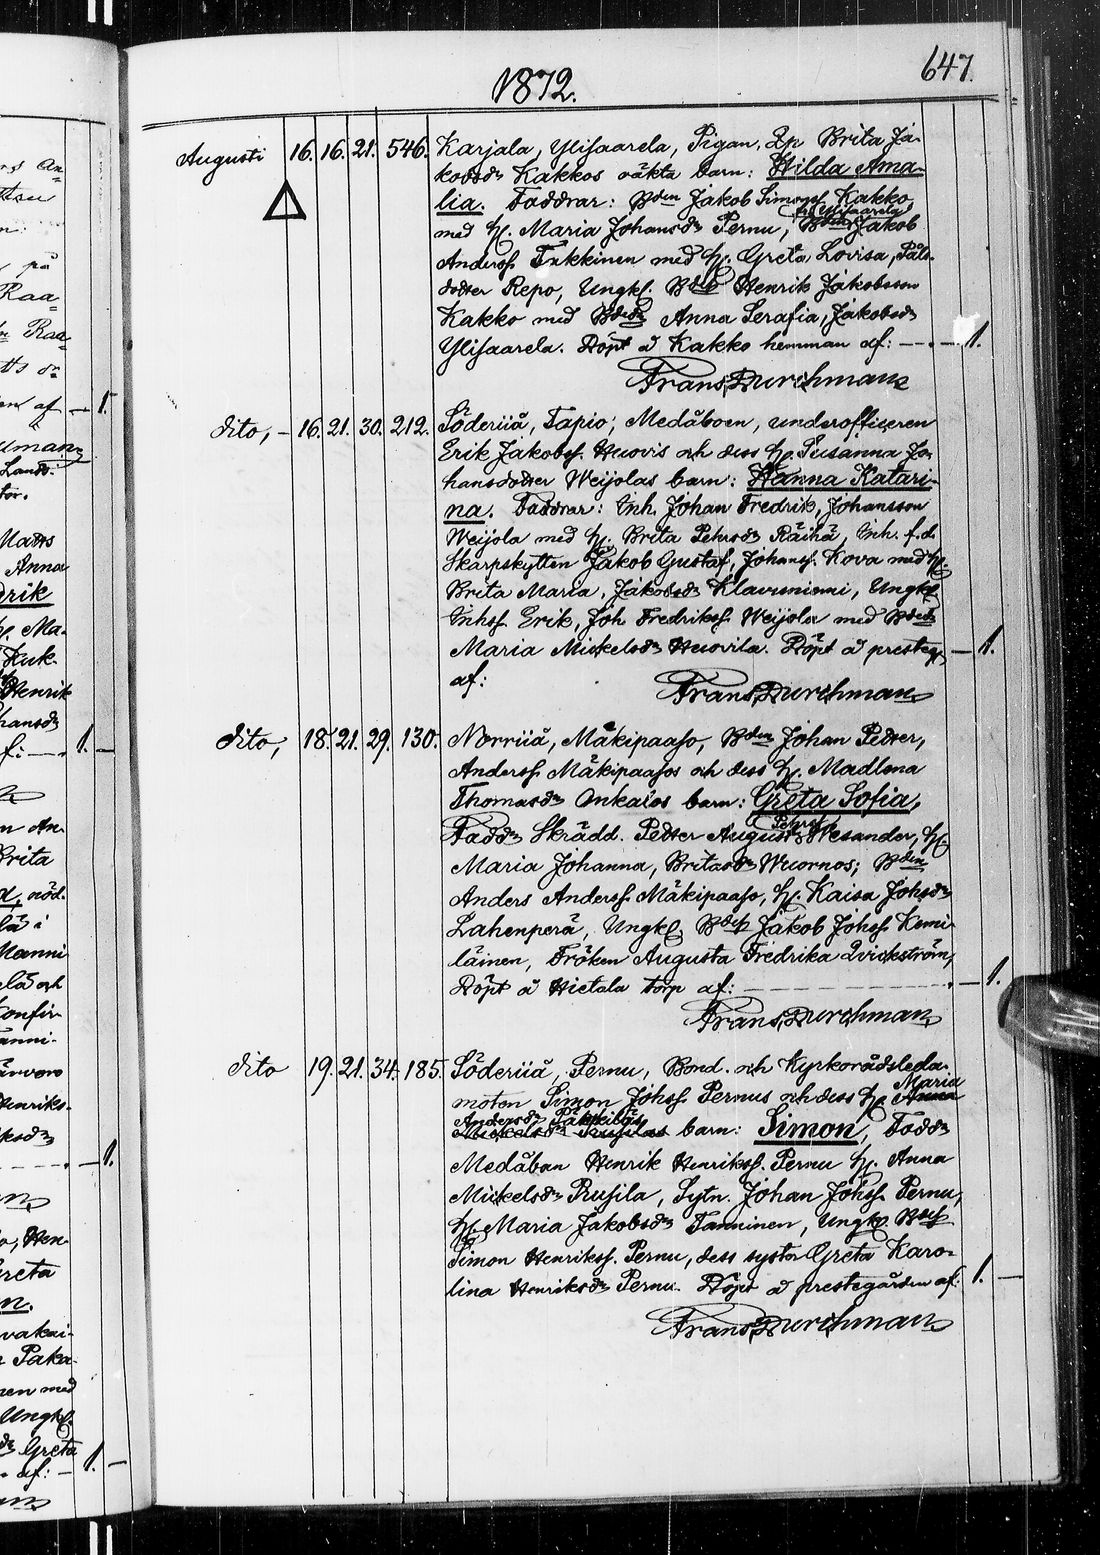 647.
1872.
Augusti 16. 16. 21. 546. Karjala, Ylisaarela, Pigan, Brita Ja-
kobsdr Kakkos oäkta barn: Hilda Ama-
lia. Faddrar: Bden Jakob Simonss. Kakko,
med h. Maria Johansdr Pernu, Bden Jakob
Anderss. Tukkinen med h. Greta Lovisa, Påls-
dotter Repo, Ungkl. Bdes. Henrik Jakobsson
Kakko med Bdedr Anna Serafia, Jakobsdr
Ylisaarela. Döpt å Kakko hemman af: — 1.
Frans Durchman
dito, – 16. 21. 30. 212. Söderiiå, Tapio, Medåboen, underofficeren
Erik Jakobss. Huovis och dess h. Susanna Jo-
hansdotter Weijolas barn: Hanna Katari-
na. Faddrar: Inh. Johan Fredrik, Johansson
Weijola med h. Brita Pehrsdr Räihä, Inh. f.d.
Skarpskytten Jakob Gustaf, Johanss. Kova med h.
Brita Maria, Jakobsdr Klavuniemi, Ungkl.
Inhss Erik, Joh Fredrikss. Weijola med Bdedr
Maria Mickelsdr Huovila. Döpt å presteg. — 1.
af:
Frans Durchman
dito, 18. 21. 29. 130. Norriiå, Mäkipaaso, Bden Johan Petter,
Anderss. Mäkipaasos och dess h. Madlena
Thomasdr Onkalos barn: Greta Sofia,
Faddr Skrädd. Petter August Pehrss Wesander, h.
Maria Johanna, Britasdr Wuornos; Bden
Anders Anderss. Mäkipaaso, h. Kaisa Johsdr
Lahenperä, Ungkl. Bdess Jakob Johss. Kemi-
läinen, Fröken Augusta Fredrika Qvickström,
Döpt å Hietala torp af: — 1.
Frans Durchman
dito 19. 21. 34. 185. Söderiiå, Pernu, Bond. och Kyrkorådsleda-
moten Simon Johss. Pernus och dess h. Anna Maria
Andersdr barn: Simon, Faddr
Medåban Henrik Henrikss. Pernu h. Anna
Mickelsdr Rusila, Sytn. Johan Johss. Pernu,
h. Maria Jakobsdr Tanninen, Ungkl. Bdess
Simon Henrikss. Pernu, dess syster Greta Karo-
lina Henriksdr Pernu. Döpt å prestegården af: 1. —
Frans Durchman